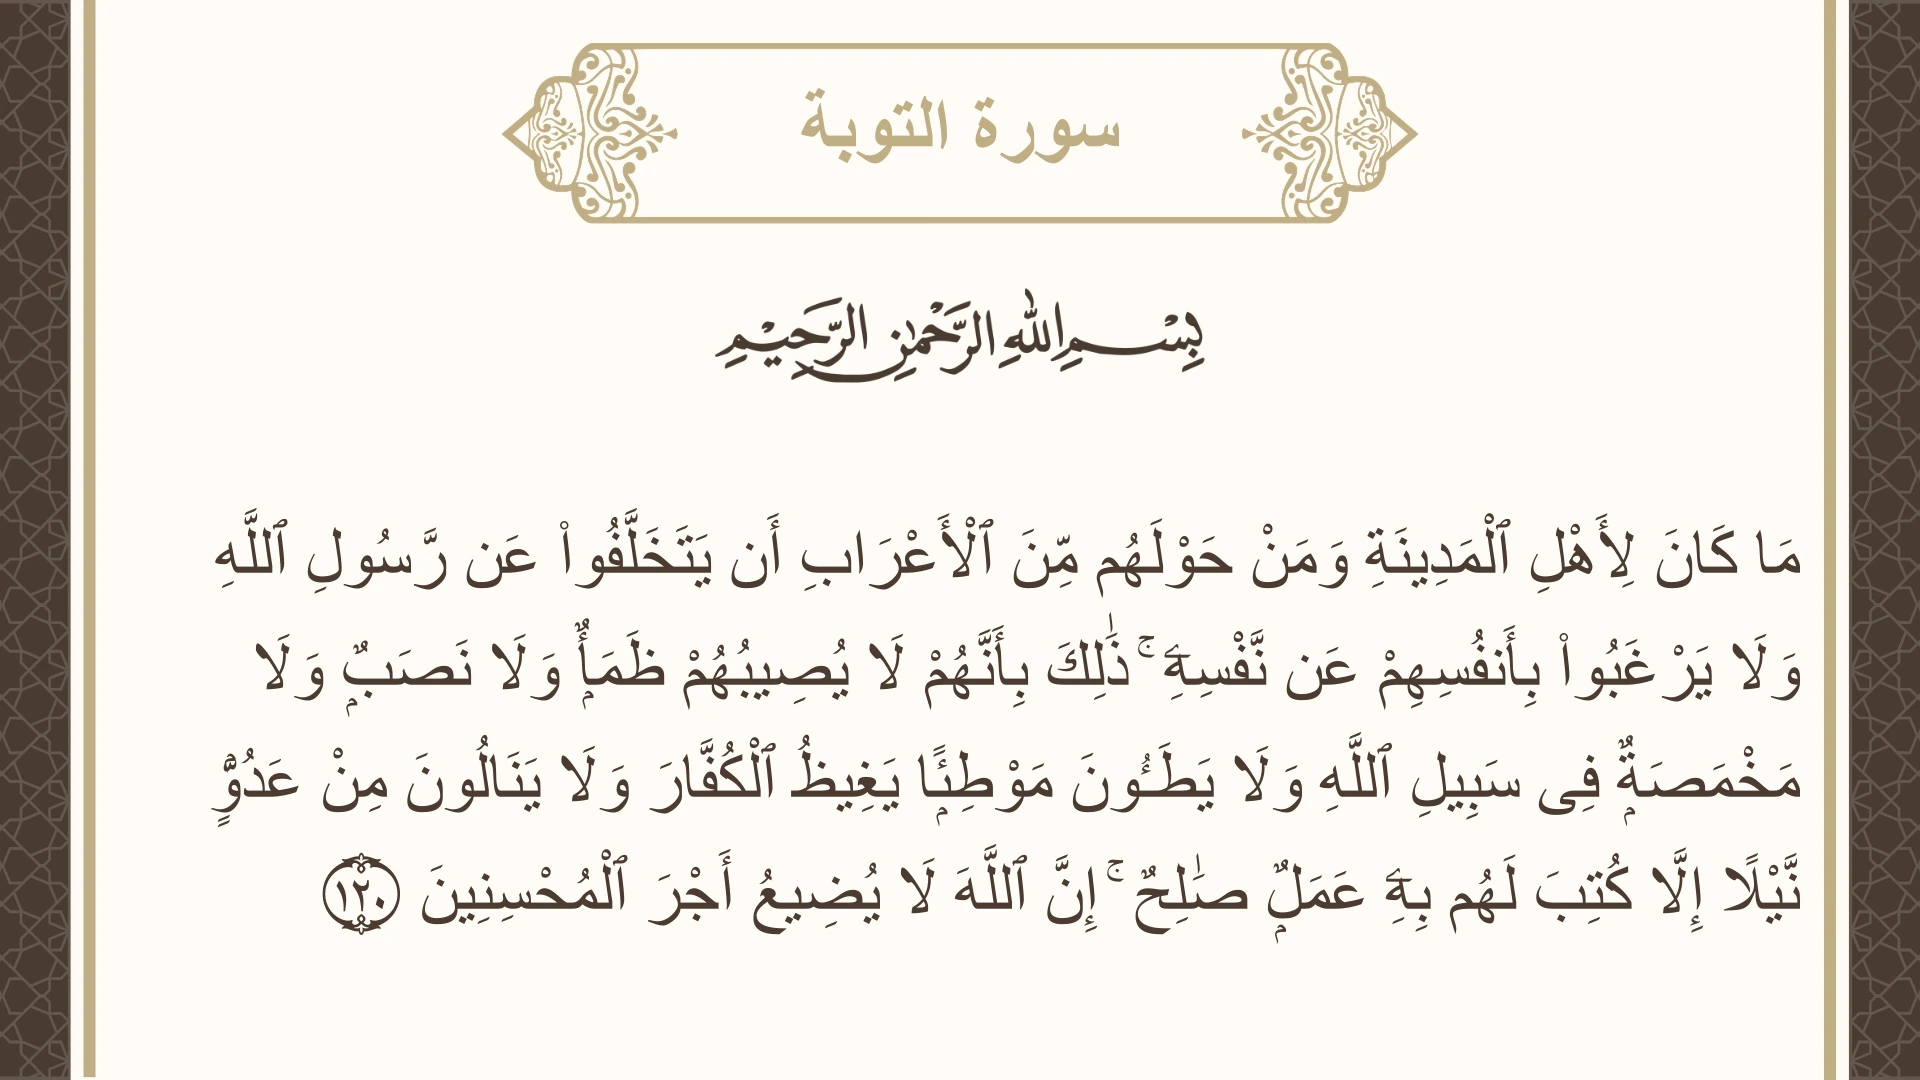 سورة التوبة
بِسْمِ اللهِ الرَّحْمٰنِ الرَّحِيْمِ
مَا كَانَ لِأَهْلِ ٱلْمَدِينَةِ وَمَنْ حَوْلَهُم مِّنَ ٱلْأَعْرَابِ أَن يَتَخَلَّفُوا۟ عَن رَّسُولِ ٱللَّهِ
وَلَا يَرْغَبُوا۟ بِأَنفُسِهِمْ عَن نَّفْسِهِۦ ۚ ذَٰلِكَ بِأَنَّهُمْ لَا يُصِيبُهُمْ ظَمَأٌۭ وَلَا نَصَبٌۭ وَلَا
مَخْمَصَةٌۭ فِى سَبِيلِ ٱللَّهِ وَلَا يَطَـُٔونَ مَوْطِئًۭا يَغِيظُ ٱلْكُفَّارَ وَلَا يَنَالُونَ مِنْ عَدُوٍّۢ
نَّيْلًا إِلَّا كُتِبَ لَهُم بِهِۦ عَمَلٌۭ صَـٰلِحٌ ۚ إِنَّ ٱللَّهَ لَا يُضِيعُ أَجْرَ ٱلْمُحْسِنِينَ ١٢٠